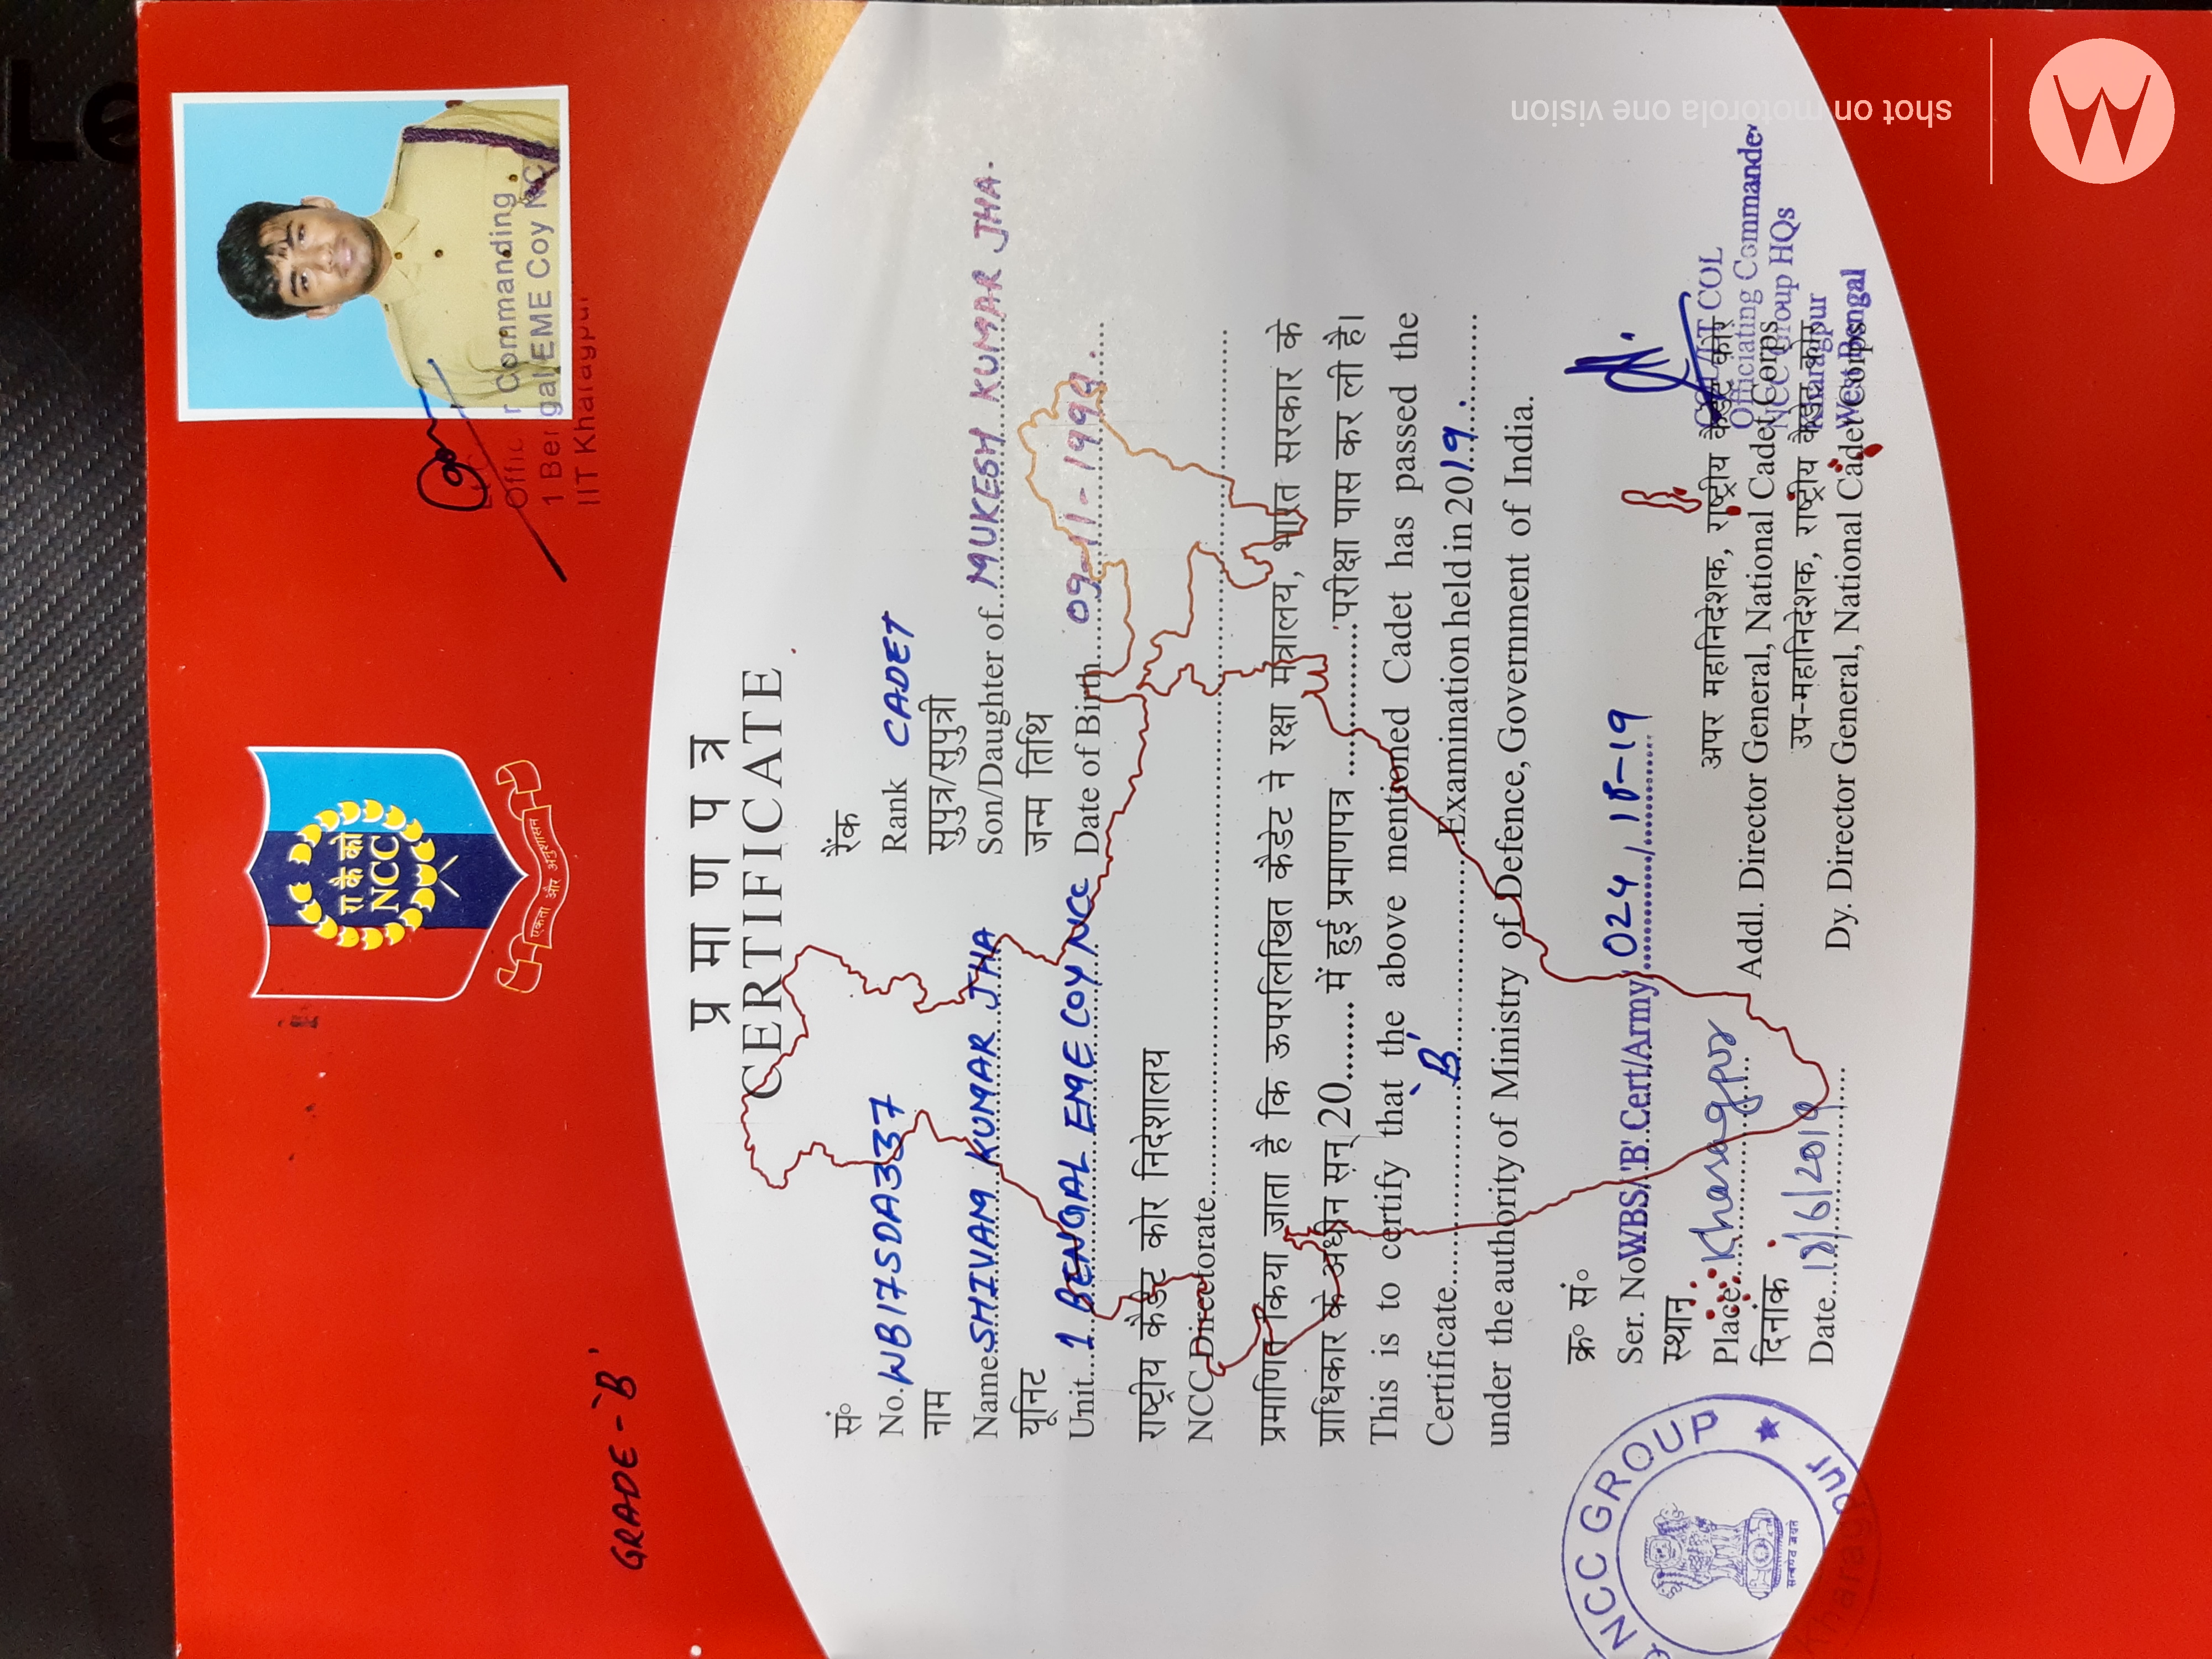 GRADE - 'B'
रा कै को
NCC
एकता और अनुशासन
Commanding
1 Bengal EME Coy NC
IIT Kharagpur
प्रमाणपत्र
CERTIFICATE
सं॰ रैंक
No. WB17SDA337 Rank CADET
नाम सुपुत्र/सुपुत्री
Name SHIVAM KUMAR JHA Son/Daughter of MUKESH KUMAR JHA.
यूनिट जन्म तिथि
Unit 1 BENGAL EME COY NCC Date of Birth 09-11-1998.
राष्ट्रीय कैडेट कोर निदेशालय
NCC Directorate
प्रमाणित किया जाता है कि ऊपरलिखित कैडेट ने रक्षा मंत्रालय, भारत सरकार के
प्राधिकार के अधीन सन् 20........ में हुई प्रमाणपत्र ............... परीक्षा पास कर ली है।
This is to certify that the above mentioned Cadet has passed the
Certificate 'B' Examination held in 2019.
under the authority of Ministry of Defence, Government of India.
क्र॰ सं॰
Ser. No WBS/'B' Cert/Army/ 024 / 18-19
स्थान
Place Kharagpur
दिनांक
Date 18/6/2019
अपर महानिदेशक, राष्ट्रीय कैडेट कोर
Addl. Director General, National Cadet Corps
उप-महानिदेशक, राष्ट्रीय कैडेट कोर
Dy. Director General, National Cadet Corps
COL
Officiating Commander
NCC Group HQs
Kharagpur
West Bengal
NCC GROUP
Kharagpur
सत्यमेव जयते
shot on motorola one vision